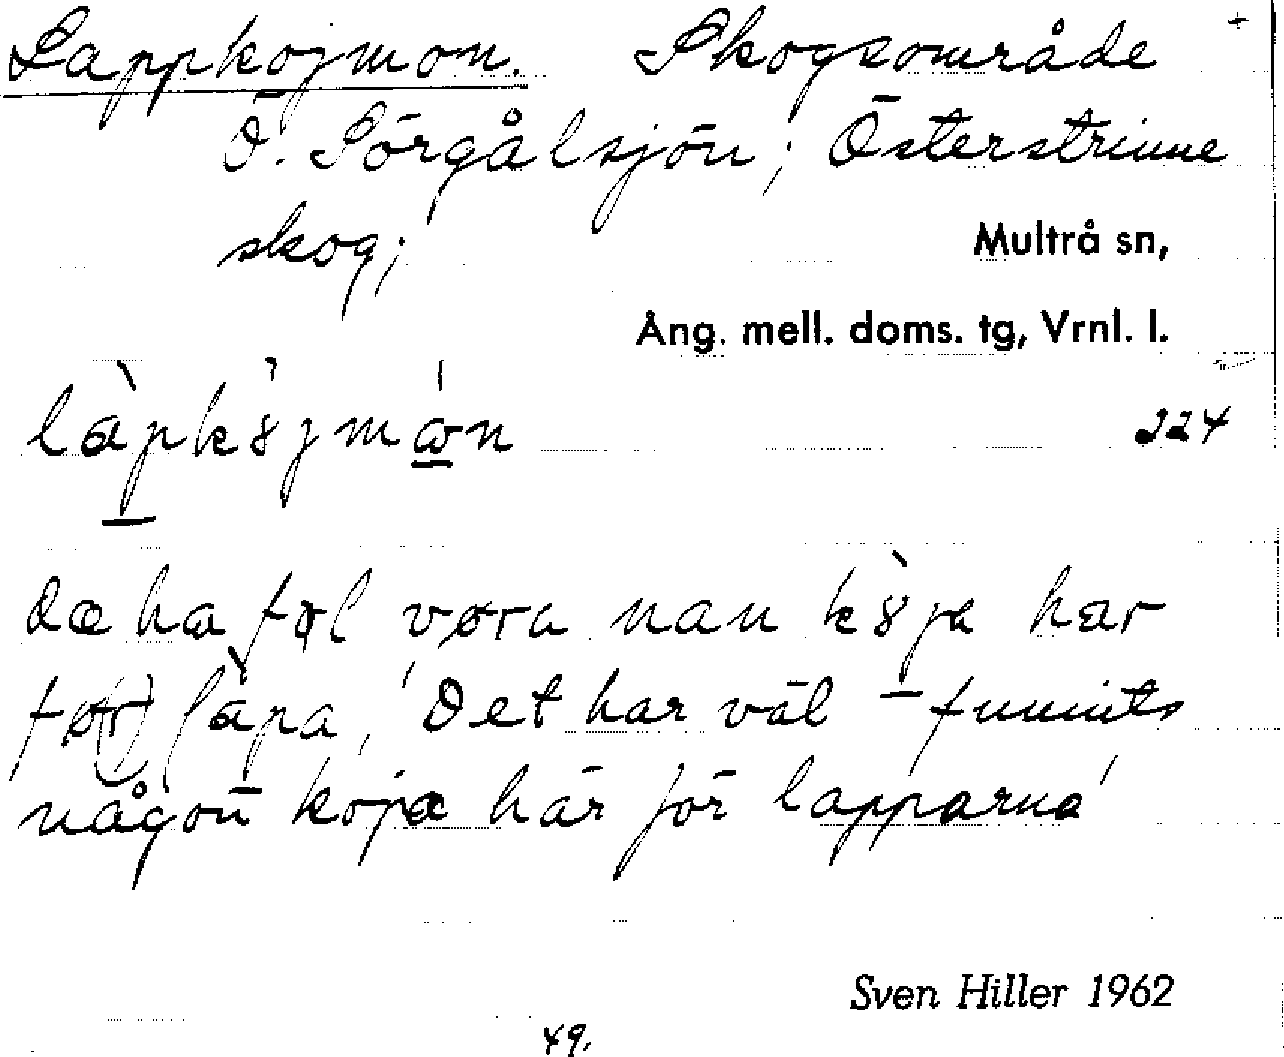 Lappkojmon. Skogsområde +
Ö. Sörgålsjön; Österstrinne
skog;
Multrå sn,
Ång. mell. doms. tg, Vrnl. l.
làpk8̀jmώn
224
dæ ha føl vøra nan k8̀ja hær
fø(r) làpa, 'Det har väl funnits
någon koja här för lapparna'
Sven Hiller 1962
49.